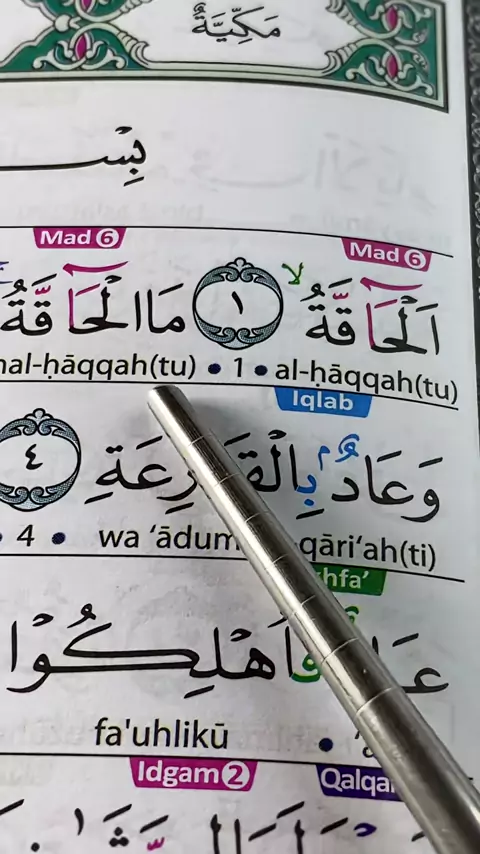 مَكِّيَّةٌ
بِسْ
Mad 6 Mad 6
اَلْحَاۤقَّةُ ۙ ١ مَا الْحَاۤقَّةُ
al-ḥāqqah(tu) • 1 • al-ḥāqqah(tu)
Iqlab
وَعَادٌ ۢ بِالْقَارِعَةِ ٤
• 4 • wa ‘ādum qāri‘ah(ti)
hfa’
فَاُهْلِكُوْا
fa'uhlikū •
Idgam 2 Qalqa